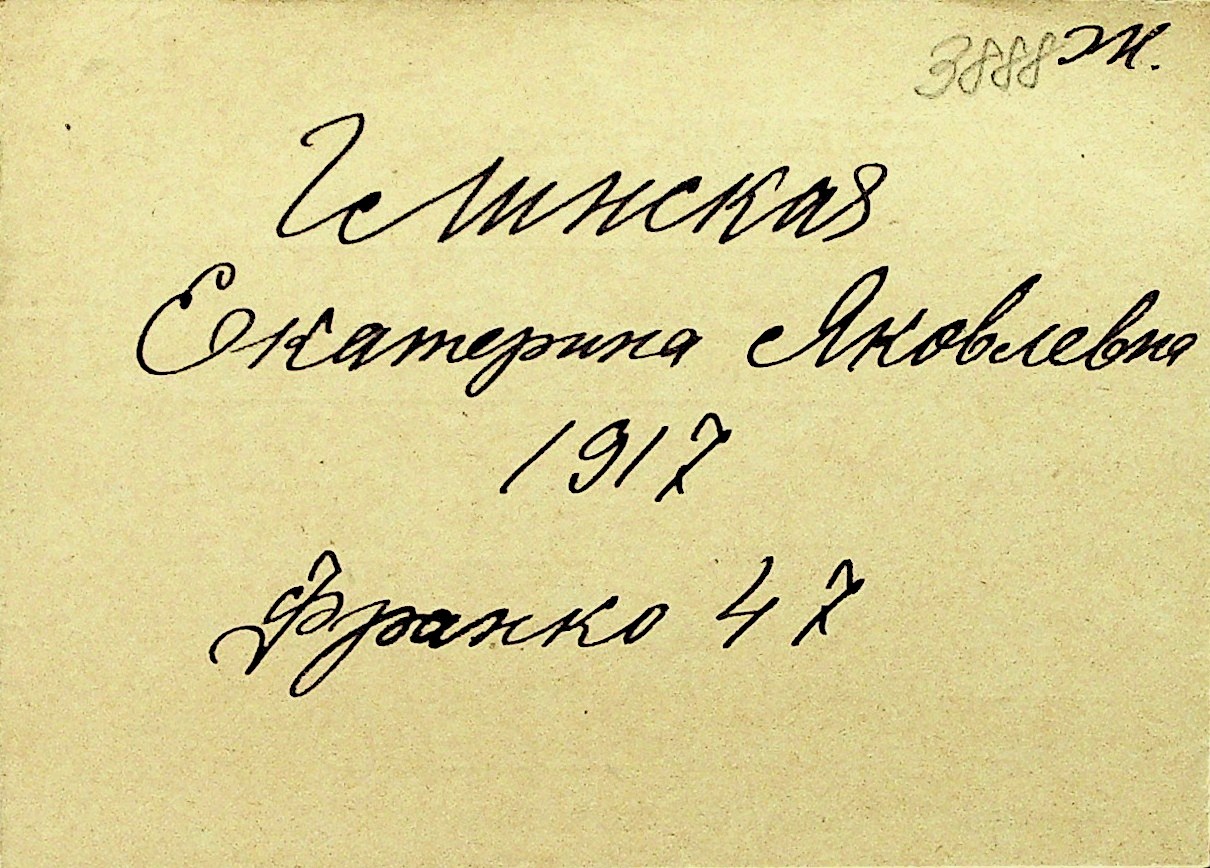 3888 ж.
Гелинская
Екатерина Яковлевна
1917
Франко 47